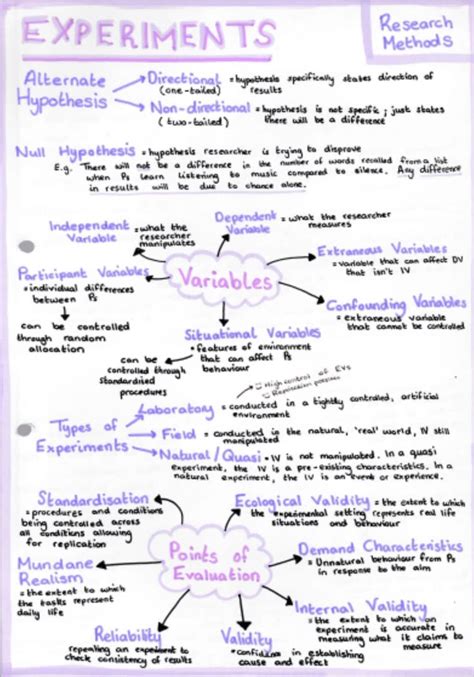 EXPERIMENTS
Research
Methods
Alternate
Hypothesis
Directional = hypothesis specifically states direction of
(one-tailed) results
Non-directional = hypothesis is not specific; just states
(two-tailed) there will be a difference
Null Hypothesis = hypothesis researcher is trying to disprove
E.g. There will not be a difference in the number of words recalled from a list
when Ps learn listening to music compared to silence. Any difference
in results will be due to chance alone.
Variables
Independent
Variable
= what the
researcher
manipulates
Dependent
Variable
= what the researcher
measures
Extraneous Variables
= variable that can affect DV
that isn't IV
Confounding Variables
= extraneous variable
that cannot be controlled
Situational Variables
• features of environment
that can affect Ps
behaviour
can be
controlled through
standardised
procedures
Participant Variables
= individual differences
between Ps
can be controlled
through random
allocation
Types of
Experiments
High control of EVs
Replication possible
Laboratory = conducted in a tightly controlled, artificial
environment
Field = conducted in the natural, 'real' world, IV still
manipulated
Natural/Quasi = IV is not manipulated. In a quasi
experiment, the IV is a pre-existing characteristics. In a
natural experiment, the IV is an event or experience.
Points of
Evaluation
Standardisation
= procedures and conditions
being controlled across
all conditions allowing
for replication
Ecological Validity = the extent to which
the experimental setting represents real life
situations and behaviour
Demand Characteristics
= Unnatural behaviour from Ps
in response to the aim
Internal Validity
= the extent to which an
experiment is accurate in
measuring what it claims to
measure
Validity
= confidence in establishing
cause and effect
Reliability
repeating an experiment to
check consistency of results
Mundane
Realism
= the extent to which
the tasks represent
daily life